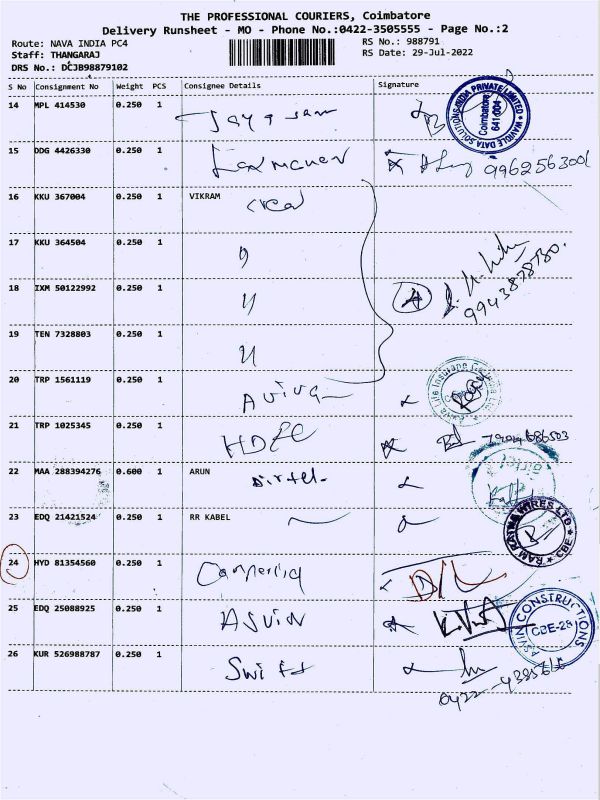 THE PROFESSIONAL COURIERS, Coimbatore
Delivery Runsheet - MO - Phone No.:0422-3505555 - Page No.:2
Route: NAVA INDIA PC4 RS No.: 988791
Staff: THANGARAJ RS Date: 29-Jul-2022
DRS No.: DCJB98879102
S No Consignment No Weight PCS Consignee Details Signature
14 MPL 414530 0.250 1
WAVOLE DATA SOLUTIONS INDIA PRIVATE LIMITED Coimbatore 641 004
15 DDG 4426330 0.250 1 9962563001
16 KKU 367004 0.250 1 VIKRAM
17 KKU 364504 0.250 1 "
18 IXM 50122992 0.250 1 " 9943878780.
19 TEN 7328803 0.250 1 "
20 TRP 1561119 0.250 1 Aviva
21 TRP 1025345 0.250 1 HDFC
22 MAA 288394276 0.600 1 ARUN Airtel.
airtel
23 EDQ 21421524 0.250 1 RR KABEL
RAM RATNA WIRES LTD CBE
24 HYD 81354560 0.250 1 D/L
25 EDQ 25088925 0.250 1 ASVIN
ASVIN CONSTRUCTIONS CBE-28
26 KUR 526988787 0.250 1 Swift